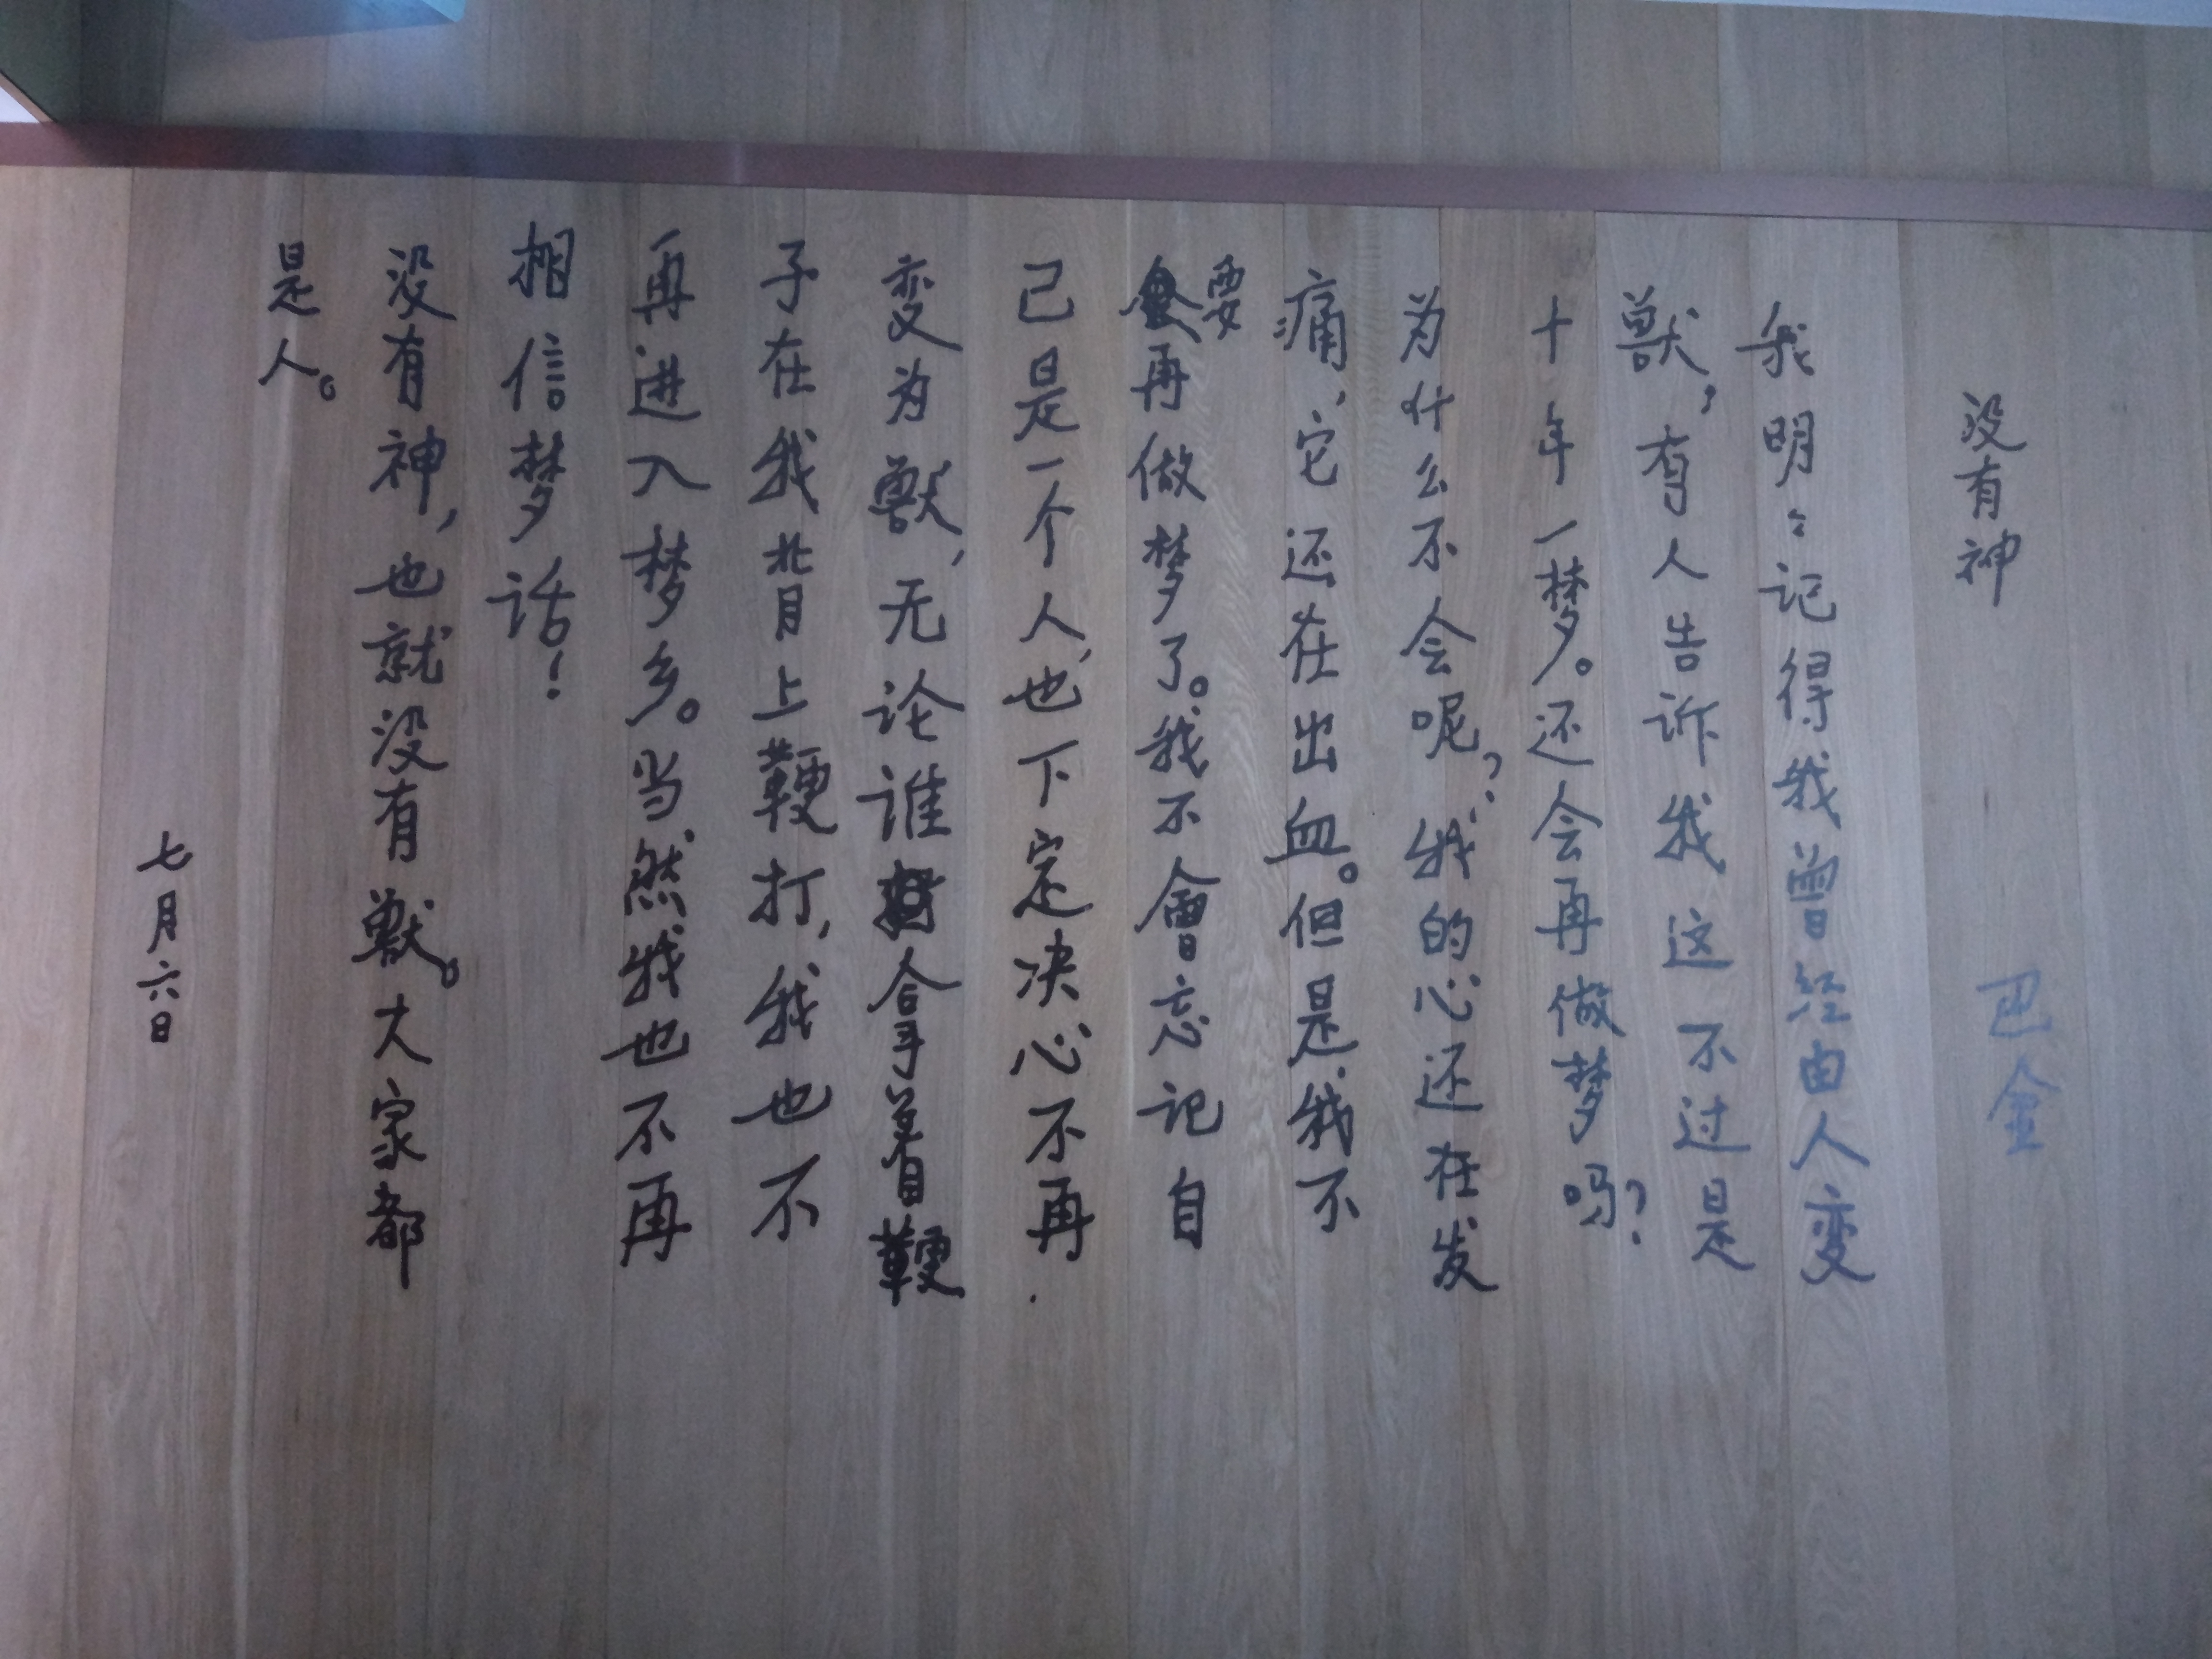 没有神 巴金
我明々记得我曾经由人变
獸，有人告诉我这不过是
十年一梦。还会再做梦吗？
为什么不会呢？我的心还在发
痛，它还在出血。但是我不
要再做梦了。我不會忘记自
己是一个人，也下定决心不再
变为獸，无论谁拿着鞭
子在我背上鞭打，我也不
再进入梦乡。当然我也不再
相信梦话！
没有神，也就没有獸。大家都
是人。
七月六日